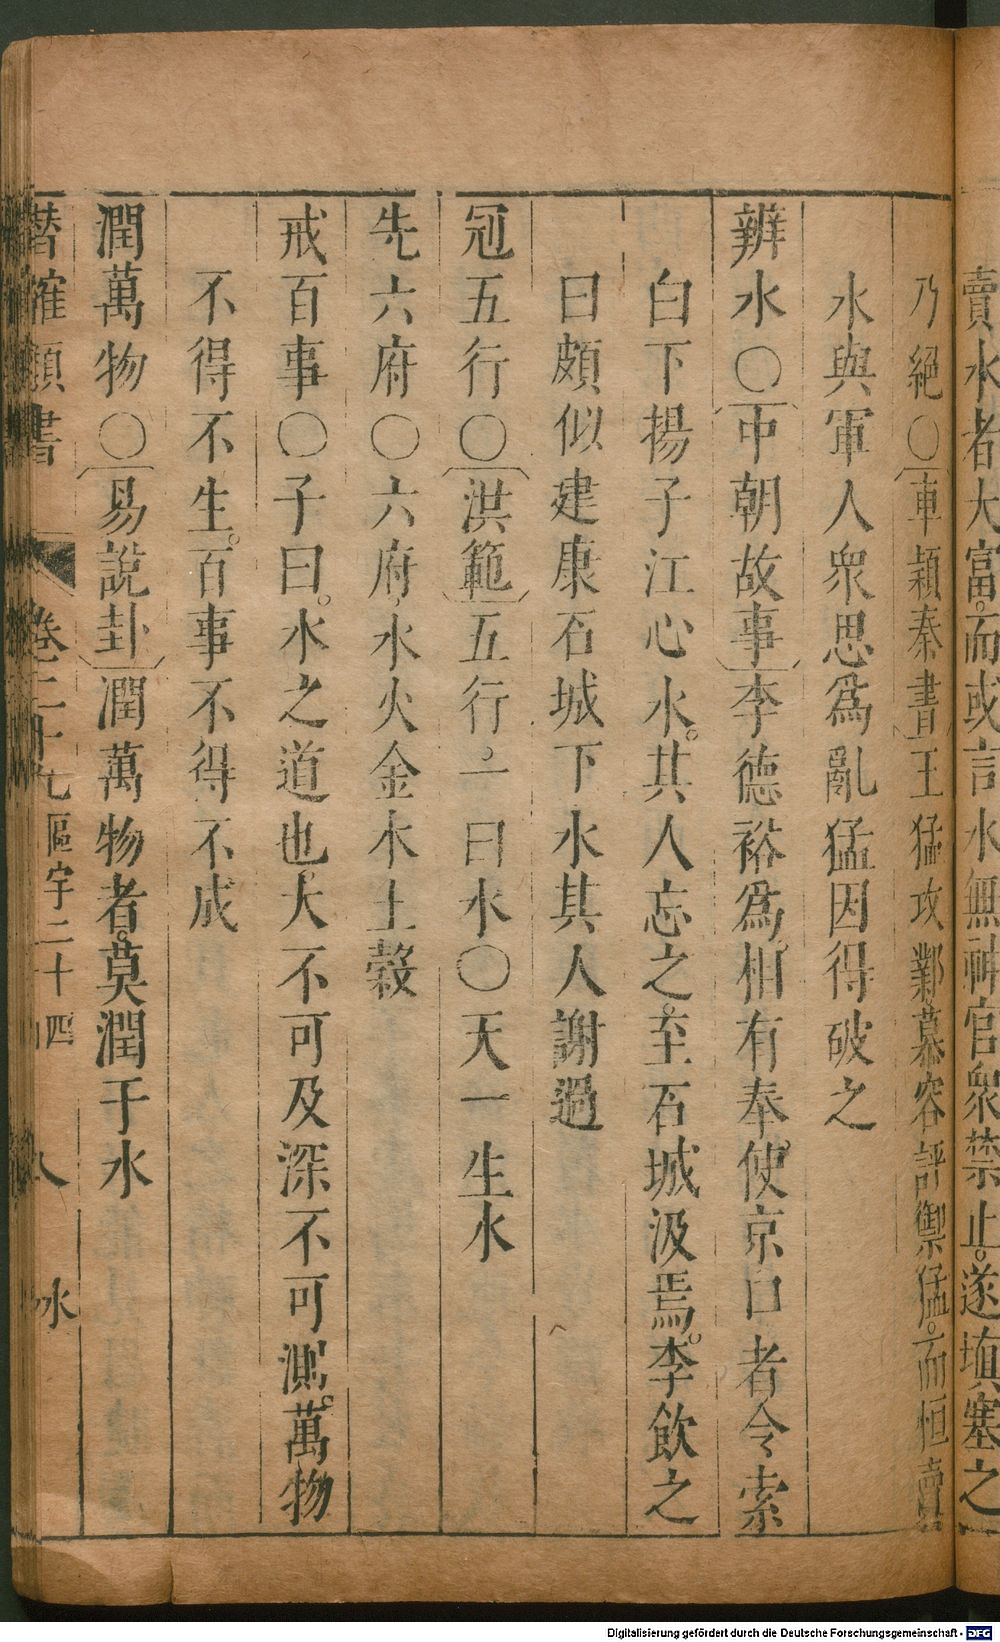 賣水者大富。而或言水無神官衆禁止。遂塡塞之
乃絕〇車頴秦書王猛攻鄴。慕容評禦猛。而恒賣
水與軍人衆思爲亂猛因得破之
辨水〇中朝故事李德裕爲相。有奉使京口者令索
白下揚子江心水。其人忘之。至石城汲焉。李飲之
曰頗似建康石城下水其人謝過
冠五行〇洪範五行。一曰水〇天一生水
先六府〇六府水火金木土榖
戒百事〇子曰。水之道也。大不可及深不可測。萬物
不得不生。百事不得不成
潤萬物〇易說卦潤萬物者。莫潤于水
潛確類書 卷二十九 區宇二十四 八 水
Digitalisierung gefördert durch die Deutsche Forschungsgemeinschaft - DFG